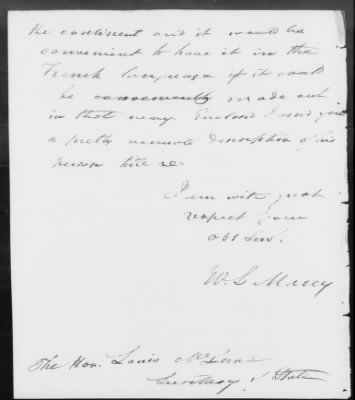 the continent and it would be
convenient to have it in the
French language if it could
be conveniently made out
in that way. Enclosed I send you
a pretty accurate description of his
person &c
I am with great
respect your
obt Serv.
W. L. Marcy
The Hon. Louis McLane
Secretary of State